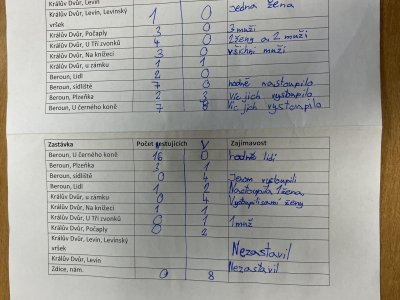 Králův Dvůr, Levín
Králův Dvůr, Levín, Levínský 1 0 Jedna žena
vršek
Králův Dvůr, Počaply 3 0 3 muži
Králův Dvůr, U Tří zvonků 4 0 2 ženy a 2 muži
Králův Dvůr, Na knížecí 3 0 všichni muži
Králův Dvůr, u zámku 1 1
Beroun, Lidl 2 0
Beroun, sídliště 7 0 hodně nastoupilo
Beroun, Plzeňka 2 3 Víc jich vystoupilo
Beroun, U černého koně 7 8 Víc jich vystoupilo
Zastávka Počet cestujících V Zajímavost
Beroun, U černého koně 16 0 hodně lidí
Beroun, Plzeňka 3 1
Beroun, sídliště 0 4 Jenom vystoupili
Beroun, Lidl 1 2 Nastoupila 1 žena
Králův Dvůr, u zámku 0 4 ženy
Králův Dvůr, Na knížecí 1 1
Králův Dvůr, U Tří zvonků 0 1 1 muž
Králův Dvůr, Počaply 0 2
Králův Dvůr, Levín, Levínský
vršek Nezastavil
Králův Dvůr, Levín Nezastavil
Zdice, nám. 0 8